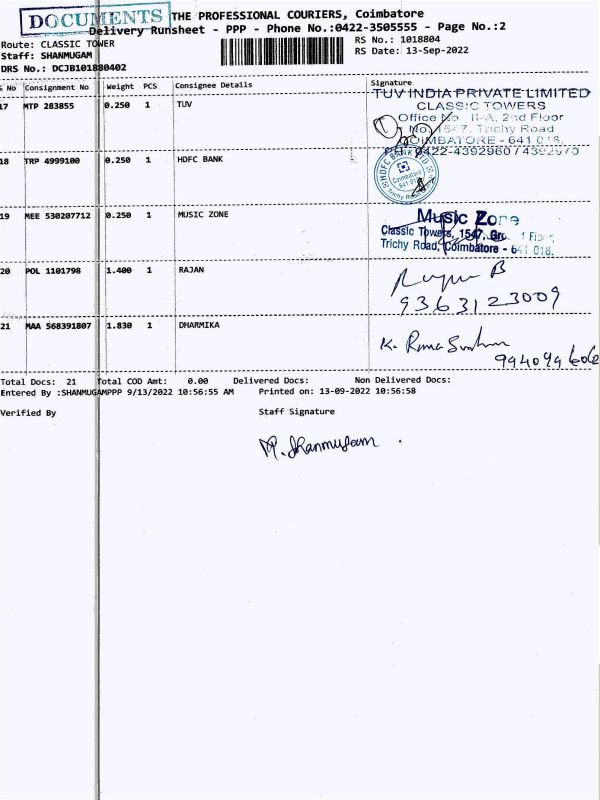 DOCUMENTS
THE PROFESSIONAL COURIERS, Coimbatore
Delivery Runsheet - PPP - Phone No.:0422-3505555 - Page No.:2
Route: CLASSIC TOWER
RS No.: 1018804
Staff: SHANMUGAM
RS Date: 13-Sep-2022
DRS No.: DCJB101880402
S No Consignment No Weight PCS Consignee Details Signature
17 MTP 283855 0.250 1 TUV
TUV INDIA PRIVATE LIMITED
CLASSIC TOWERS
Office No II-A, 2nd Floor
No. 1547, Trichy Road
COIMBATORE - 641 018.
0422-4392960 / 4392970
18 TRP 4999100 0.250 1 HDFC BANK
HDFC BANK LTD
Coimbatore
641 018
Trichy Road
19 MEE 530207712 0.250 1 MUSIC ZONE
Music Zone
Classic Towers, 1547, Ground Floor,
Trichy Road, Coimbatore - 641 018.
20 POL 1101798 1.400 1 RAJAN
B
9363123009
21 MAA 568391807 1.830 1 DHARMIKA
K.
Total Docs: 21 Total COD Amt: 0.00 Delivered Docs: Non Delivered Docs:
Entered By :SHANMUGAMPPP 9/13/2022 10:56:55 AM Printed on: 13-09-2022 10:56:58
Verified By Staff Signature
P. Shanmugam .